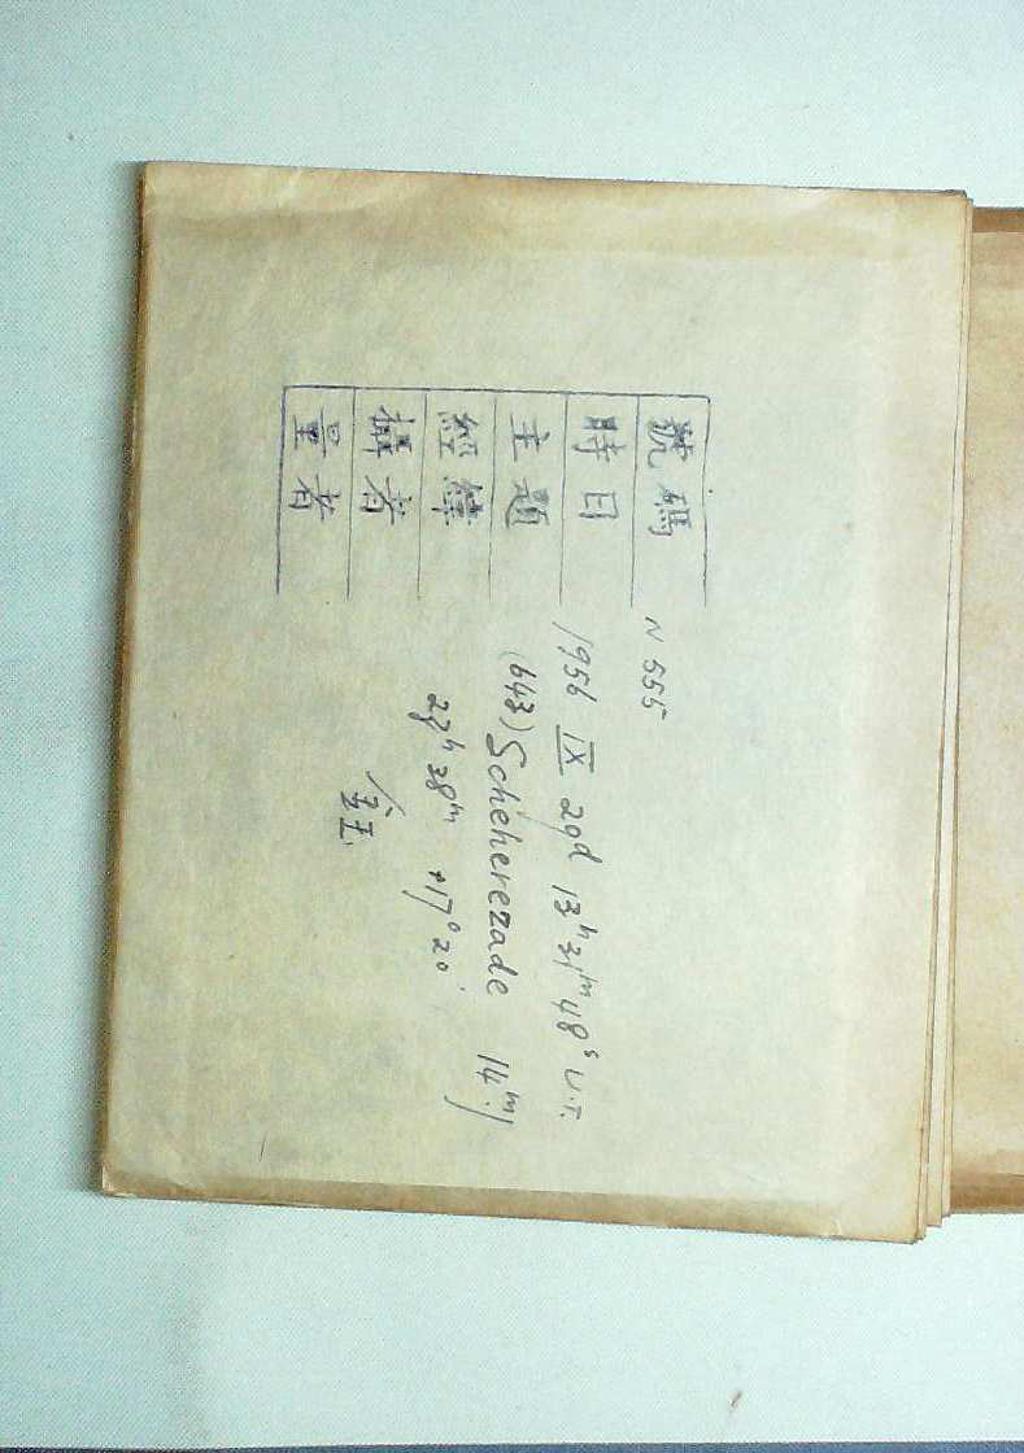 號碼 N 555
時日 1956 IX 29d 13h 31m 48s U.T.
主題 (643) Scheherezade 14m.)
經緯 23h 38m +17° 20'
攝者
量者